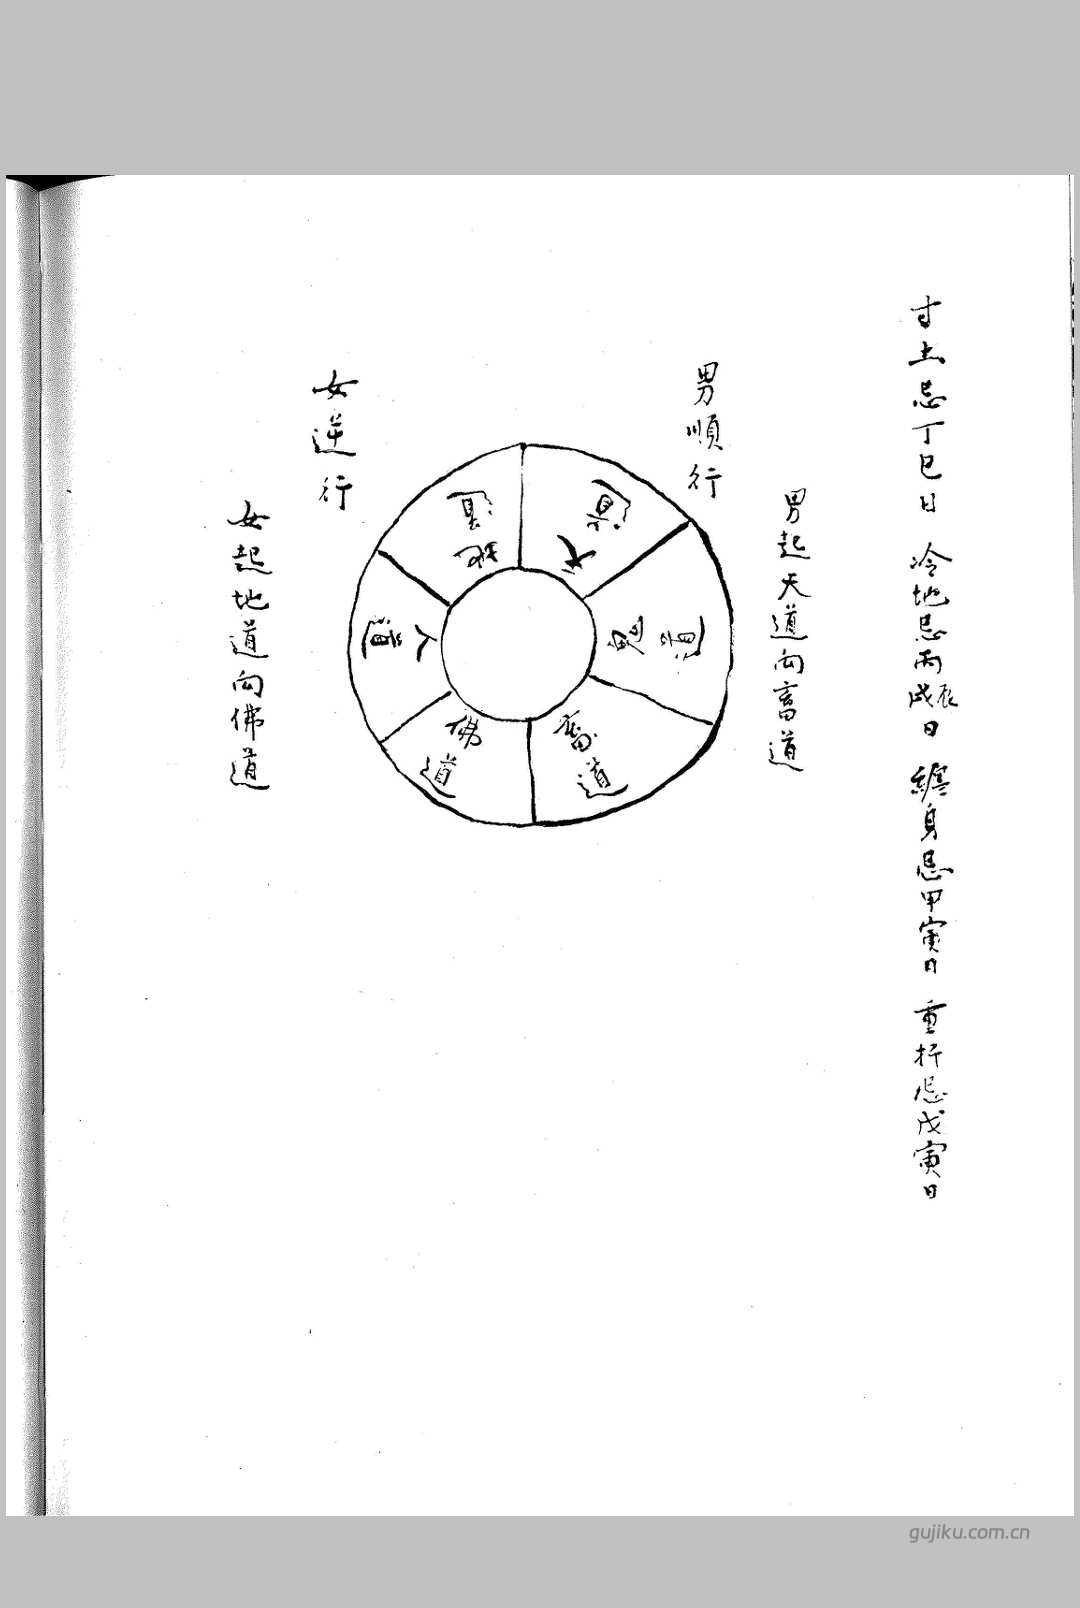 寸土忌丁巳日 冷地忌丙辰戌日 纏身忌甲寅日 重忌戊寅日
男起天道向畜道
男順行
天道
鬼道
畜道
佛道
人道
地道
女逆行
女起地道向佛道
gujiku.com.cn